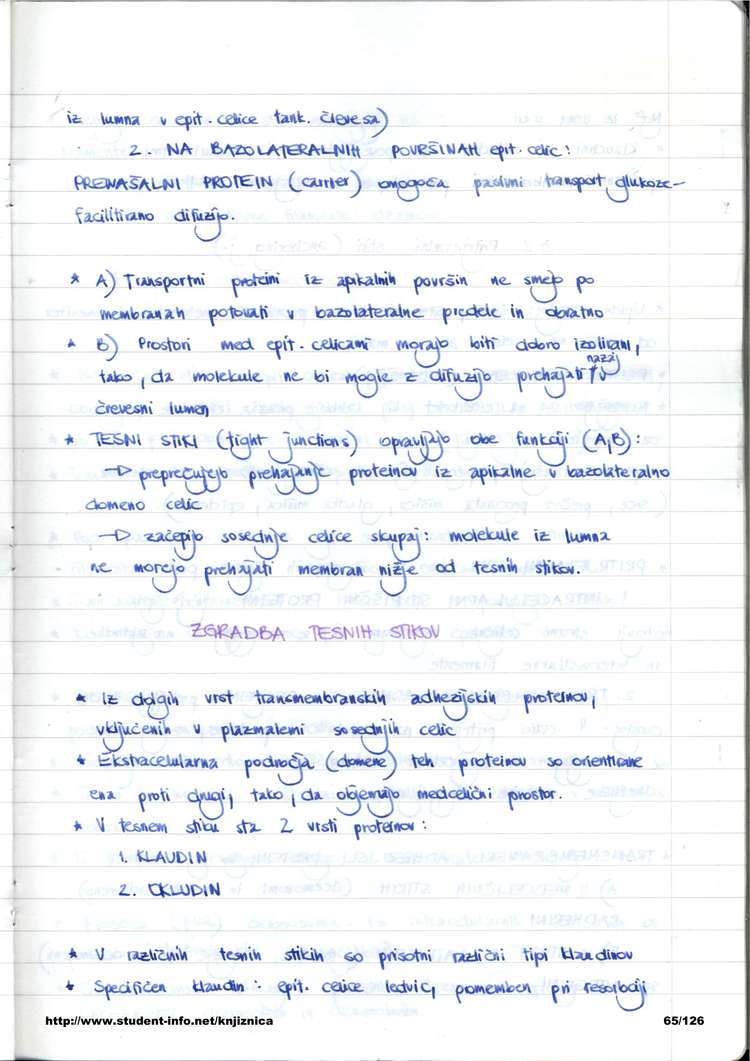 iz lumna v epit. celice tank. črevesa)
2. NA BAZOLATERALNIH POVRŠINAH epit. celic:
PRENAŠALNI PROTEIN (carrier) omogoča pasivni transport glukoze -
facilitirano difuzijo.
* A) Transportni proteini iz apikalnih površin ne smejo po
membranah potovati v bazolateralne predele in obratno
* B) Prostori med epit. celicami morajo biti dobro izolirani,
tako, da molekule ne bi mogle z difuzijo prehajati nazaj v
črevesni lumen
* TESNI STIKI (tight junctions) opravljajo obe funkciji (A,B):
→ preprečujejo prehajanje proteinov iz apikalne v bazolateralno
domeno celic
→ začepijo sosednje celice skupaj: molekule iz lumna
ne morejo prehajati membran nižje od tesnih stikov.
ZGRADBA TESNIH STIKOV
* iz dolgih vrst transmembranskih adhezijskih proteinov,
vključenih v plazmalemi sosednjih celic
* Ekstracelularna področja (domene) teh proteinov so orientirane
ena proti drugi, tako, da objemajo medcelični prostor.
* V tesnem stiku sta 2 vrsti proteinov:
1. KLAUDIN
2. OKLUDIN
* V različnih tesnih stikih so prisotni različni tipi klaudinov
* Specifičen klaudin: epit. celice ledvic, pomemben pri resorbciji
http://www.student-info.net/knjiznica 65/126